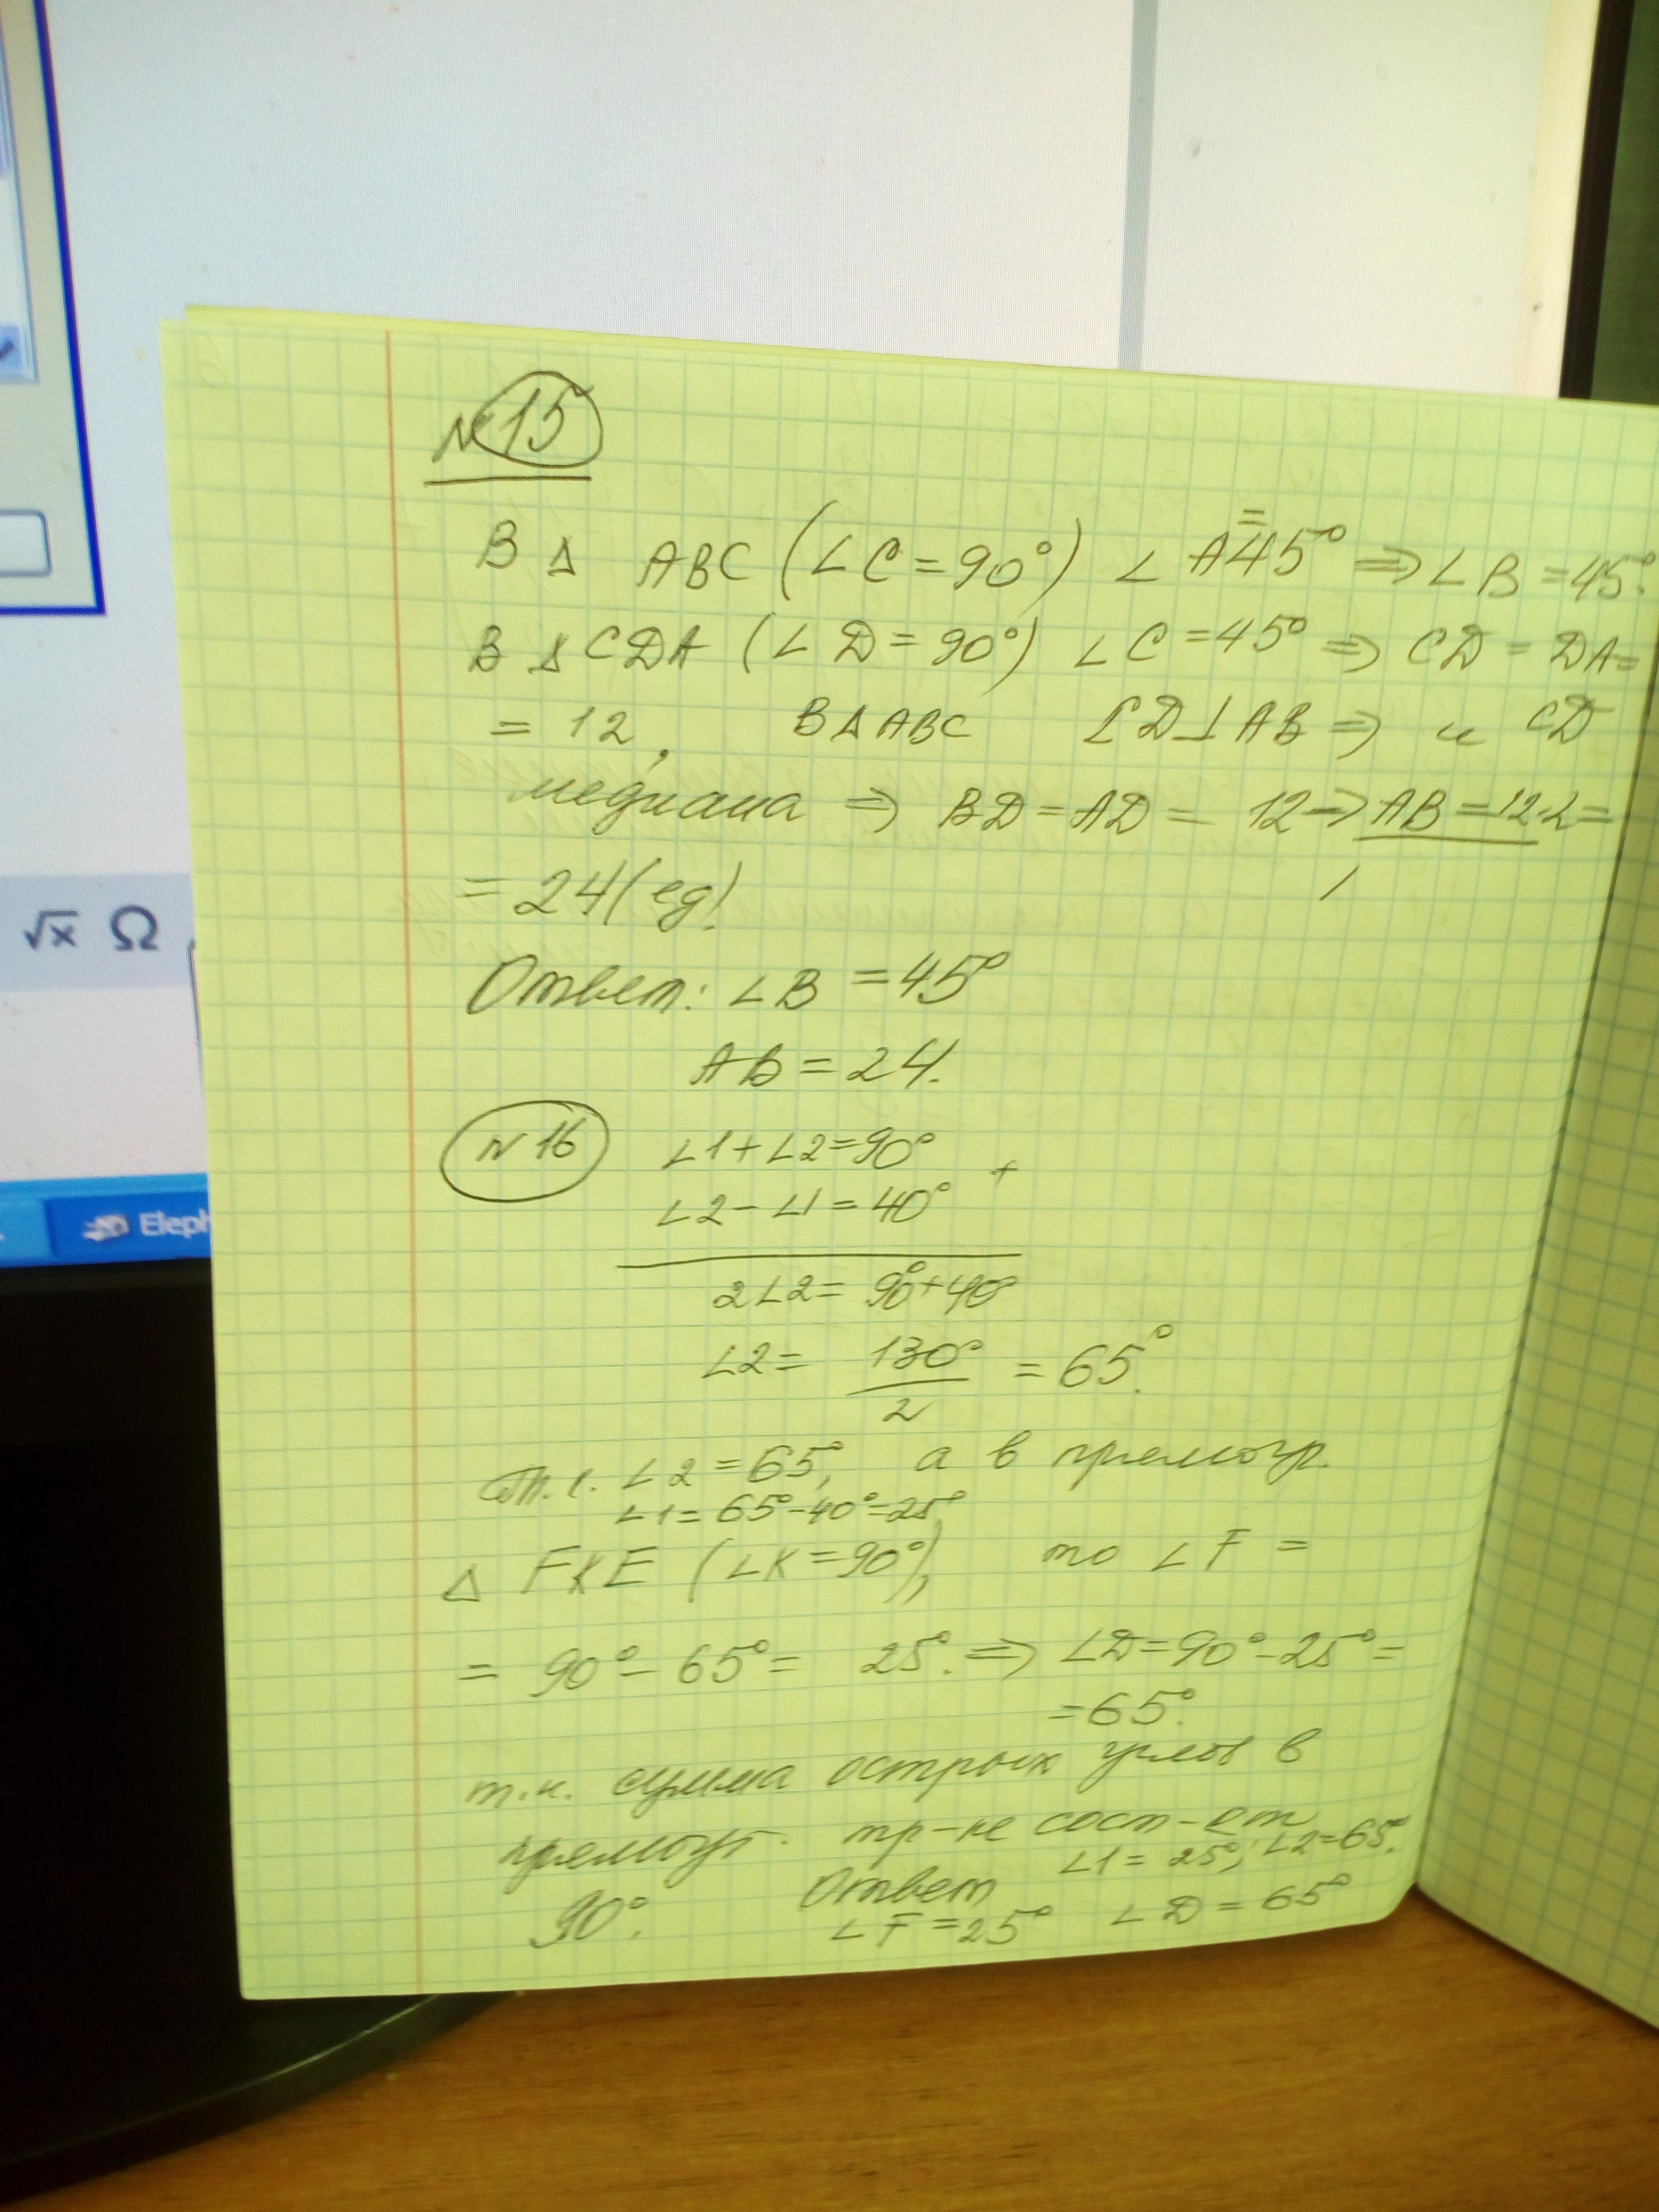 №15
В Δ ABC (∠C=90°) ∠A=45° ⇒ ∠B=45°.
В Δ CDA (∠D=90°) ∠C=45° ⇒ CD=DA=
=12, В Δ ABC CD⊥AB ⇒ и CD
медиана ⇒ BD=AD=12 ⇒ AB=12·2=
=24(ед)
Ответ: ∠B=45°
AB=24.
№16
∠1+∠2=90°
+
∠2-∠1=40°
2∠2=90°+40°
∠2=130°/2=65°.
Т.е. ∠2=65°, а в прямоуг.
∠1=65°-40°=25°
Δ FKE (∠K=90°), то ∠F=
=90°-65°=25°. ⇒ ∠D=90°-25°=
=65°.
т.к. сумма острых углов в
прямоуг. тр-ке сост-ет
90°.
Ответ ∠1=25°; ∠2=65°.
∠F=25° ∠D=65°
√x Ω
Eleph